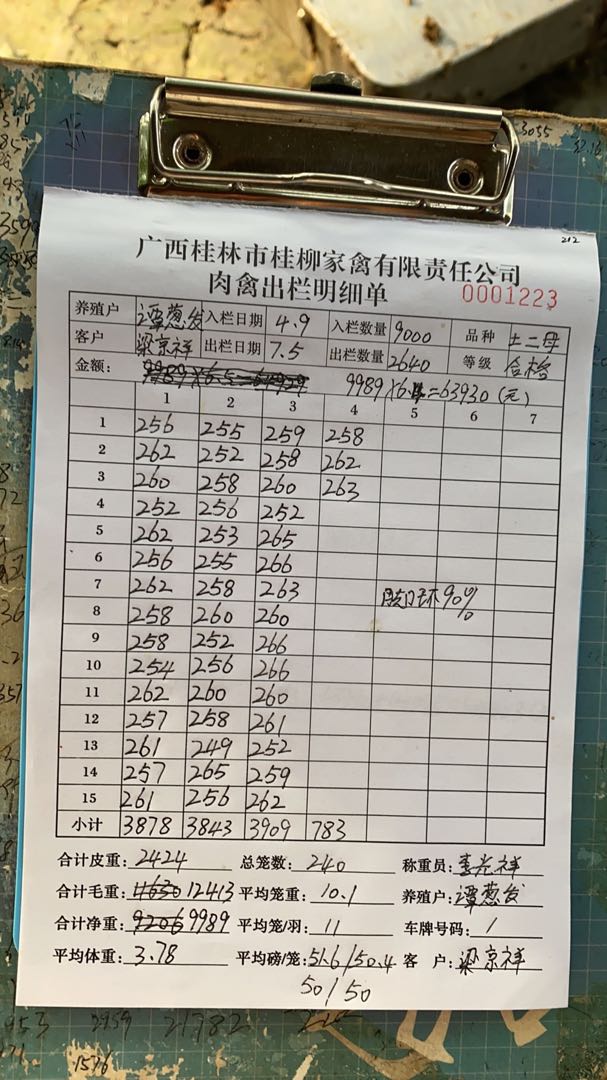 212
广西桂林市桂柳家禽有限责任公司
肉禽出栏明细单 0001223
养殖户 谭葱发 入栏日期 4.9 入栏数量 9000 品种 土二母
客户 梁京祥 出栏日期 7.5 出栏数量 2640 等级 合格
金额: 9989×6.4=63930(元)
1 2 3 4 5 6 7
1 256 255 259 258
2 262 252 258 262
3 260 258 260 263
4 252 256 252
5 262 253 265
6 256 255 266
7 262 258 263
8 258 260 260 90%
9 258 252 266
10 254 256 266
11 262 260 260
12 257 258 261
13 261 249 252
14 257 265 259
15 261 256 262
小计 3878 3843 3909 783
合计皮重: 2424 总笼数: 240 称重员: 李光祥
合计毛重: 11630 12413 平均笼重: 10.1 养殖户: 谭葱发
合计净重: 9206 9989 平均笼/羽: 11 车牌号码: /
平均体重: 3.78 平均磅/笼: 51.6/50.4 客户: 梁京祥
50/50